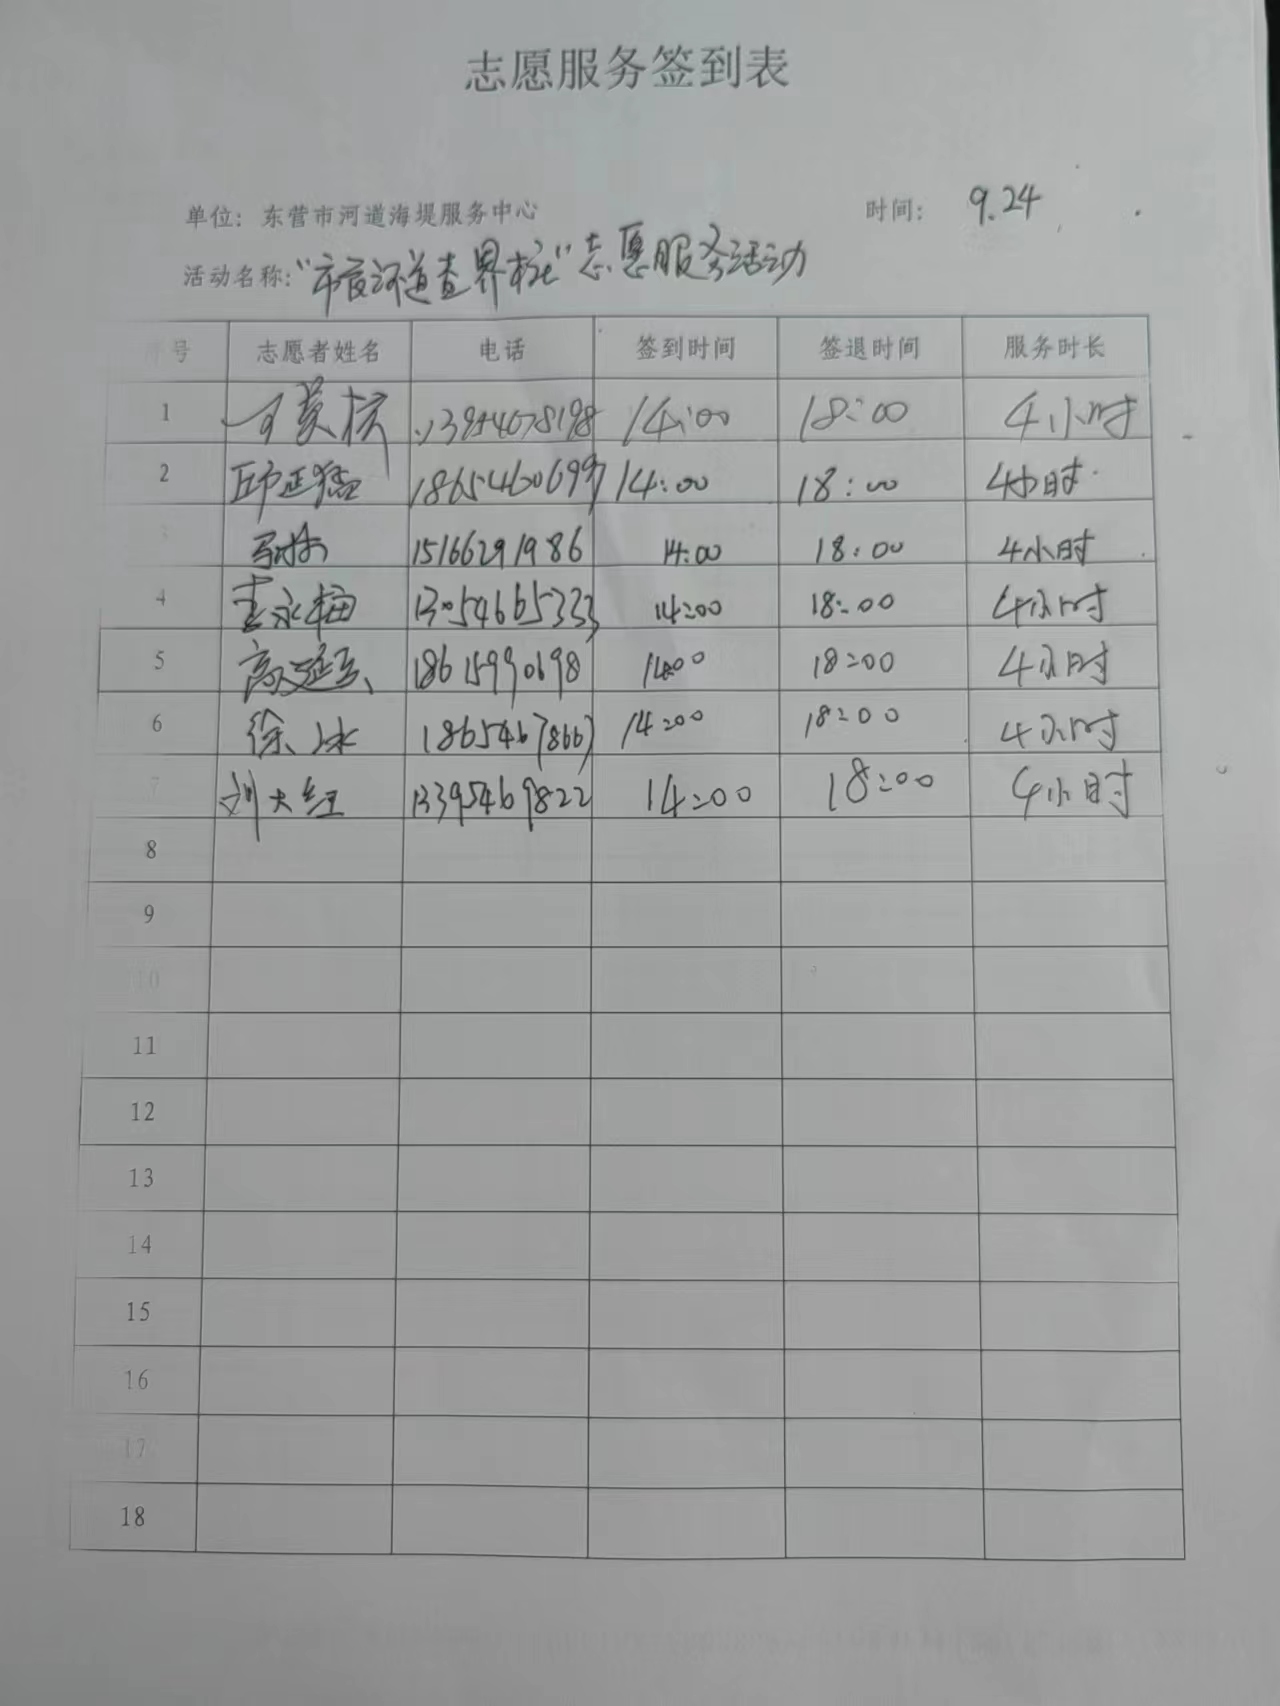 志愿服务签到表
单位：东营市河道海堤服务中心 时间： 9.24
活动名称："市管河道查界桩"志愿服务活动
序号 志愿者姓名 电话 签到时间 签退时间 服务时长
1 13954078198 14:00 18:00 4小时
2 邱延猛 18654606997 14:00 18:00 4小时
3 15166291986 14:00 18:00 4小时
4 李永梅 13054665333 14:00 18:00 4小时
5 18615990698 14:00 18:00 4小时
6 徐冰 18654678667 14:00 18:00 4小时
7 刘大红 13395469822 14:00 18:00 4小时
8
9
10
11
12
13
14
15
16
17
18